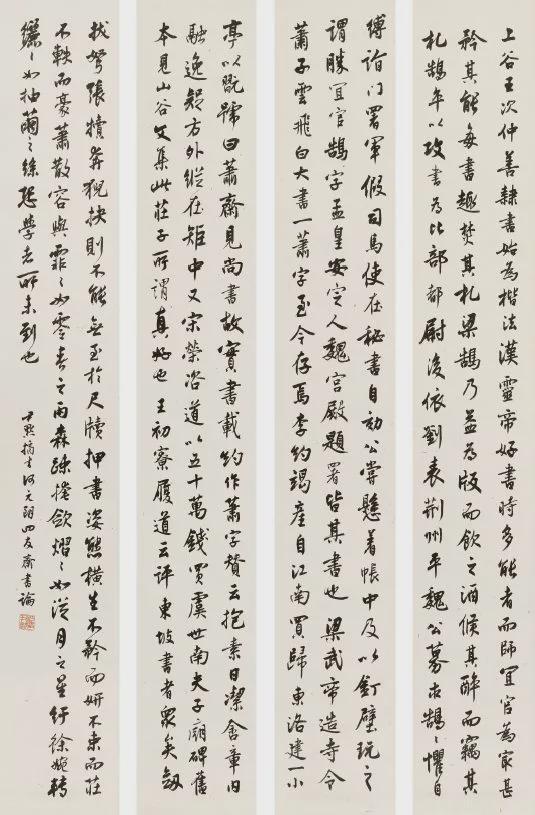 上谷王次仲善隸書始為楷法漢靈帝好書時多能者而師宜官為最甚
矜其能每書輒焚其札梁鵠乃益為版而飲之酒候其醉而竊其
札鵠卒以攻書為比部都尉後依劉表荊州平魏公募求鵠鵠懼自
縛詣門署軍假司馬使在秘書自効公嘗懸着帳中及以釘壁玩之
謂勝宜官鵠字孟皇安定人魏宮殿題署皆其書也梁武帝造寺令
蕭子雲飛白大書一蕭字至今存焉李約竭產自江南買歸東洛建一小
亭以翫號曰蕭齋見尚書故實書載約作蕭字贊云抱素日潔含章内
融逸疑方外縱在矩中又宋榮咨道以五十萬錢買虞世南夫子廟碑舊
本見山谷文集此莊子所謂真好也王初寮履道云評東坡書者衆矣劔
拔弩張犢奔猊抉則不能無至於尺牘押書姿態橫生不矜而妍不束而莊
不軼而豪蕭散容與霏霏如零春之雨森疎掩歛熠熠如從月之星紆徐婉轉
纚纚如抽繭之絲恐學者所未到也
尹默摘書何元朗四友齋書論